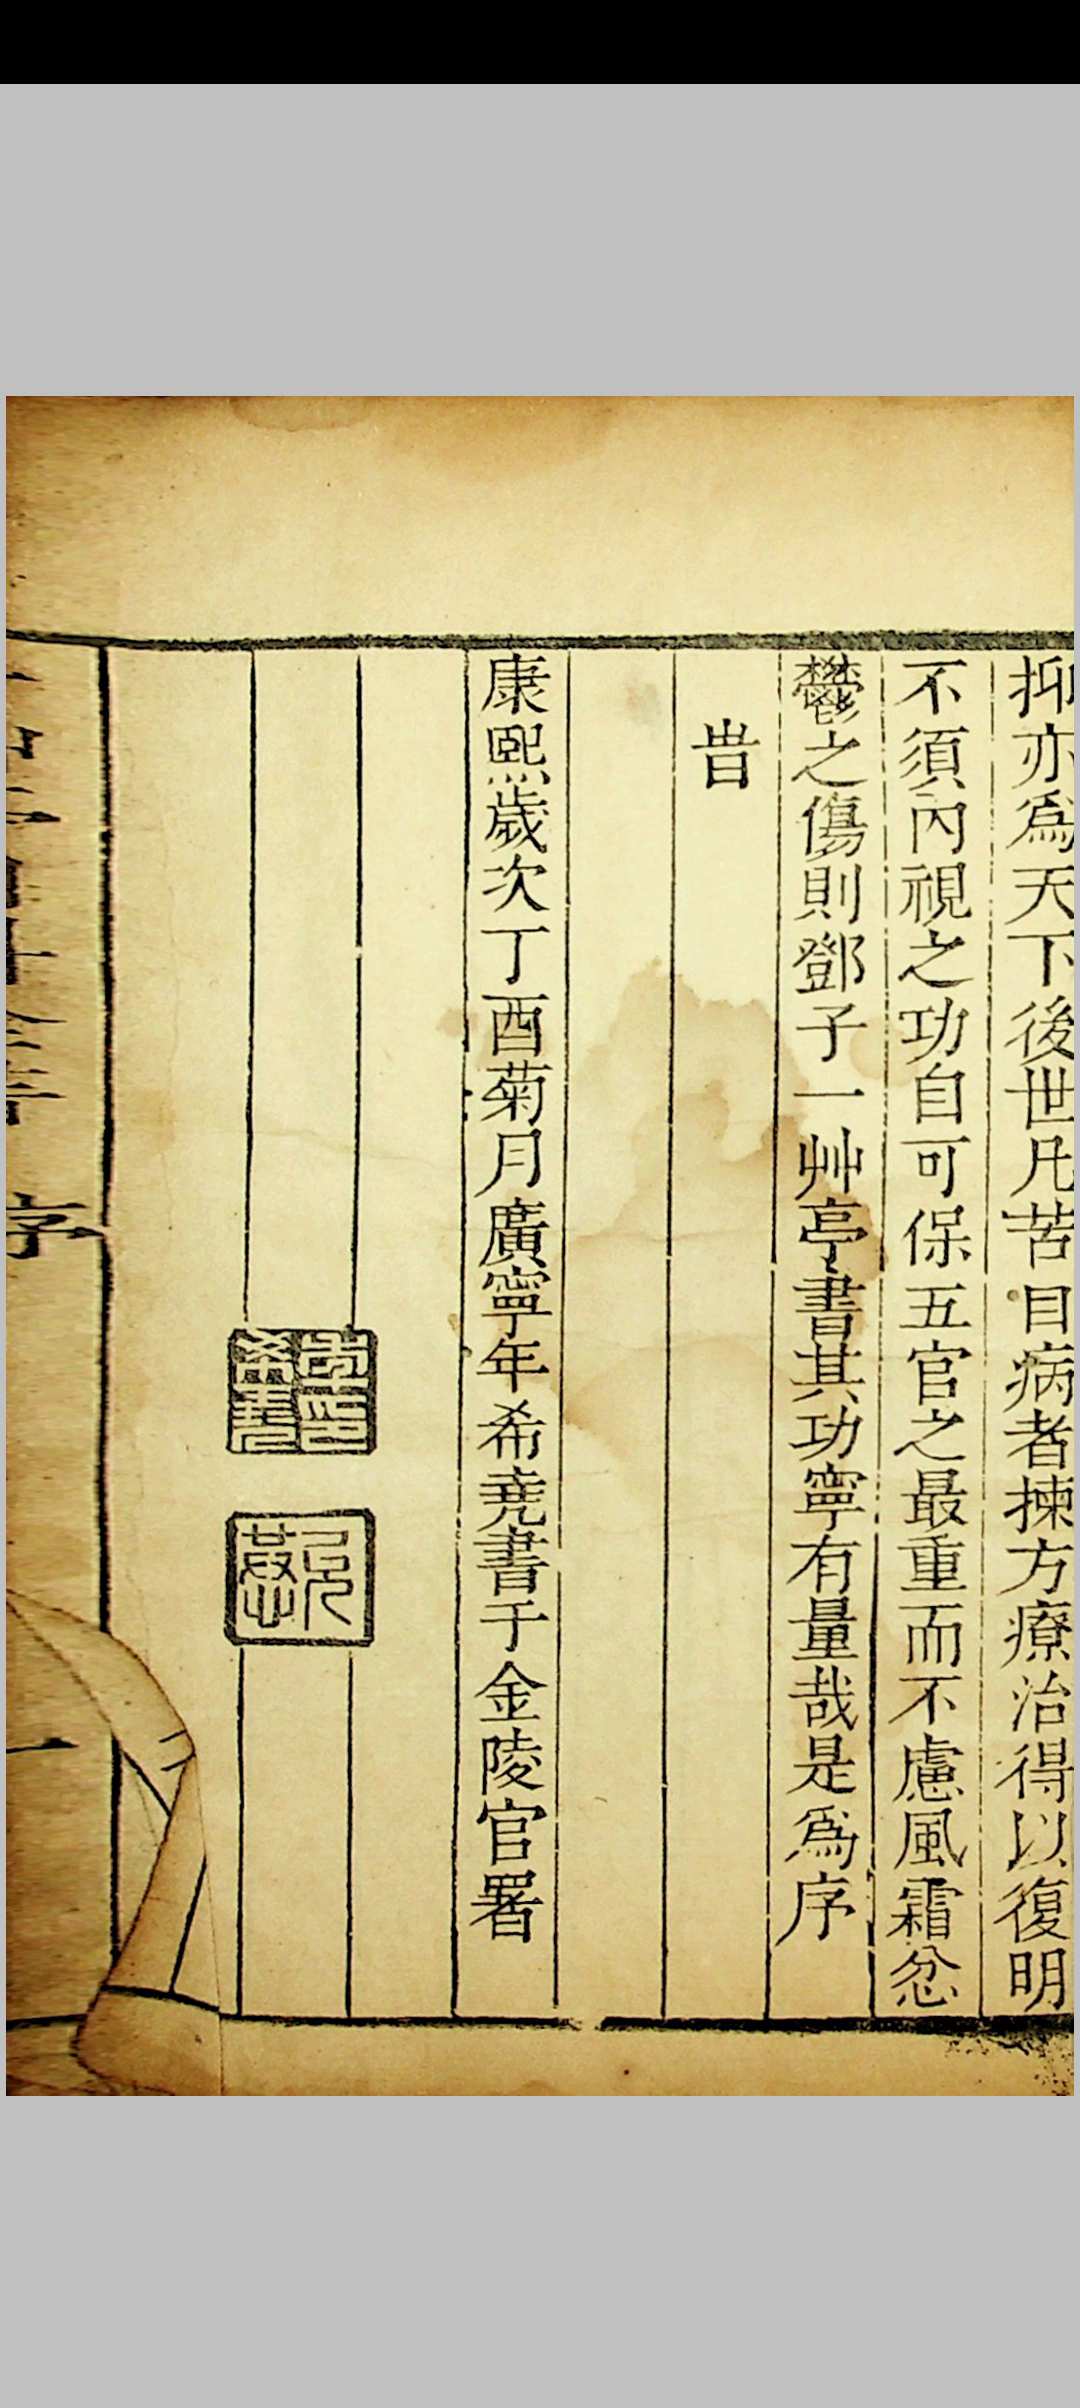 抑亦爲天下後世凡苦目病者揀方療治得以復明
不須內視之功自可保五官之最重而不慮風霜忿
鬱之傷則鄧子一艸亭書其功寧有量哉是爲序
旹
康熙歲次丁酉菊月廣寧年希堯書于金陵官署
序
一